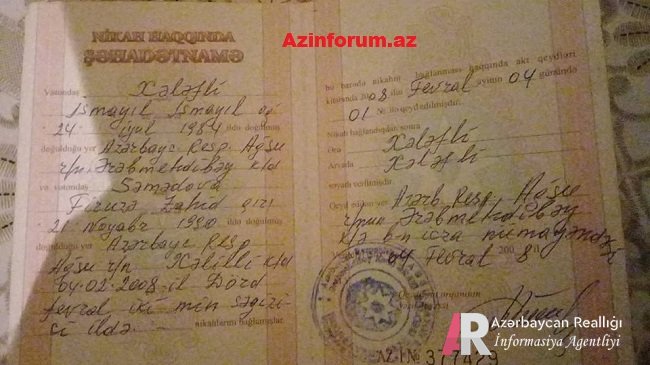 Azinforum.az
NİKAH HAQQINDA
ŞƏHADƏTNAMƏ
Vətəndaş Xələfli
İsmayıl İsmayıl oğ
24 iyul 1984 ildə doğulmuş
doğulduğu yer Azərbayc Resp. Ağsu
r/nu Ərəbmehdibəy k/d
və vətəndaş Səmədova
Firuzə Zahid qızı
21 Noyabr 1990 ildə doğulmuş
doğulduğu yer Azərbayc Resp
Ağsu r/n Xəlilli k/d
04-02-2008-il Dörd
fevral, iki min səgizin
ci ildə
nikahlarını bağlamışlar.
bu barədə nikahın bağlanması haqqında akt qeydləri
kitabında 2008 ilin Fevral ayının 04 günündə
01 № ilə qeyd edilmişdir.
Nikah bağlandıqdan sonra
Ərə Xələfli
Arvada Xələfli
soyadı verilmişdir.
Qeyd edilən yer Azərb Resp Ağsu
r/nun Ərəbmehdibəy
k/d icra nümayəndə
04 Fevral 2008 il
AZ-I № 377429
AR Azərbaycan Reallığı
İnformasiya Agentliyi